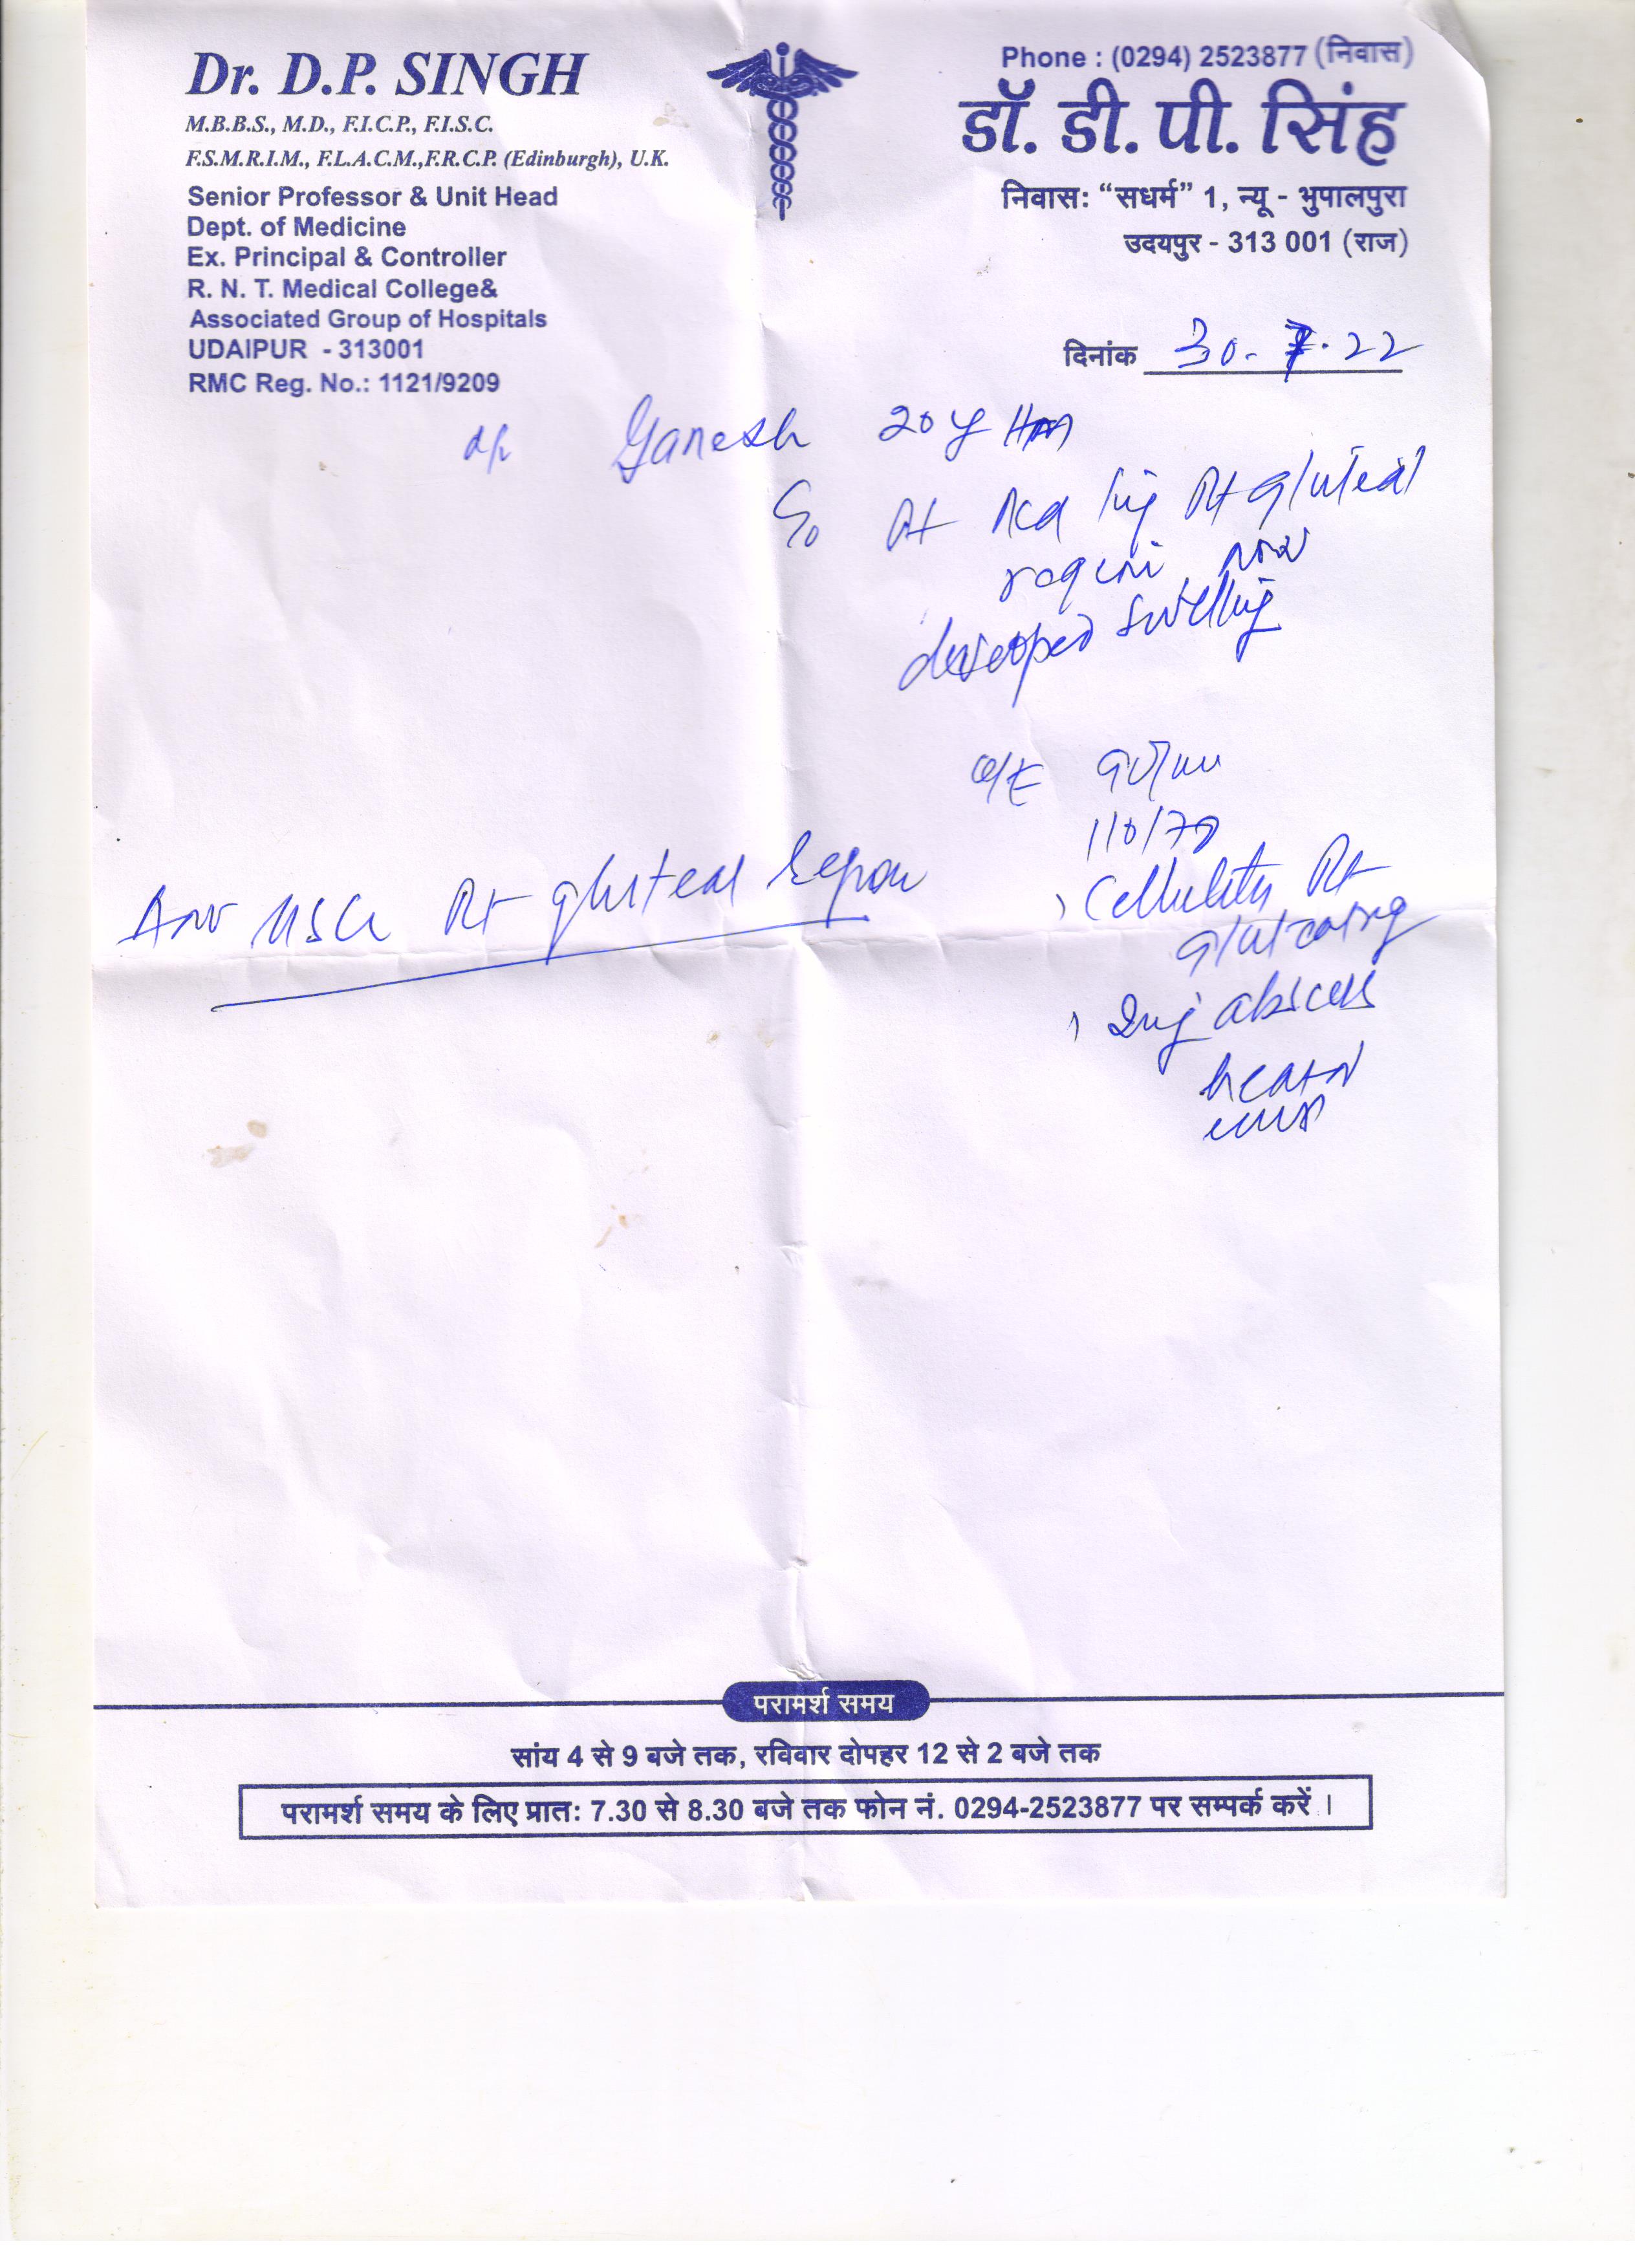 Dr. D.P. SINGH
M.B.B.S., M.D., F.I.C.P., F.I.S.C.
F.S.M.R.I.M., F.L.A.C.M.,F.R.C.P. (Edinburgh), U.K.
Senior Professor & Unit Head
Dept. of Medicine
Ex. Principal & Controller
R. N. T. Medical College&
Associated Group of Hospitals
UDAIPUR - 313001
RMC Reg. No.: 1121/9209
Phone : (0294) 2523877 (निवास)
डॉ. डी. पी. सिंह
निवास: “सधर्म” 1, न्यू - भुपालपुरा
उदयपुर - 313 001 (राज)
दिनांक 30-7.22
Ganesh 20 y
Rt gluteal
now
developed swelling
O/E
110/70
Cellulitis Rt
Adv USG Rt gluteal region
Inj abscess
परामर्श समय
सांय 4 से 9 बजे तक, रविवार दोपहर 12 से 2 बजे तक
परामर्श समय के लिए प्रातः 7.30 से 8.30 बजे तक फोन नं. 0294-2523877 पर सम्पर्क करें ।